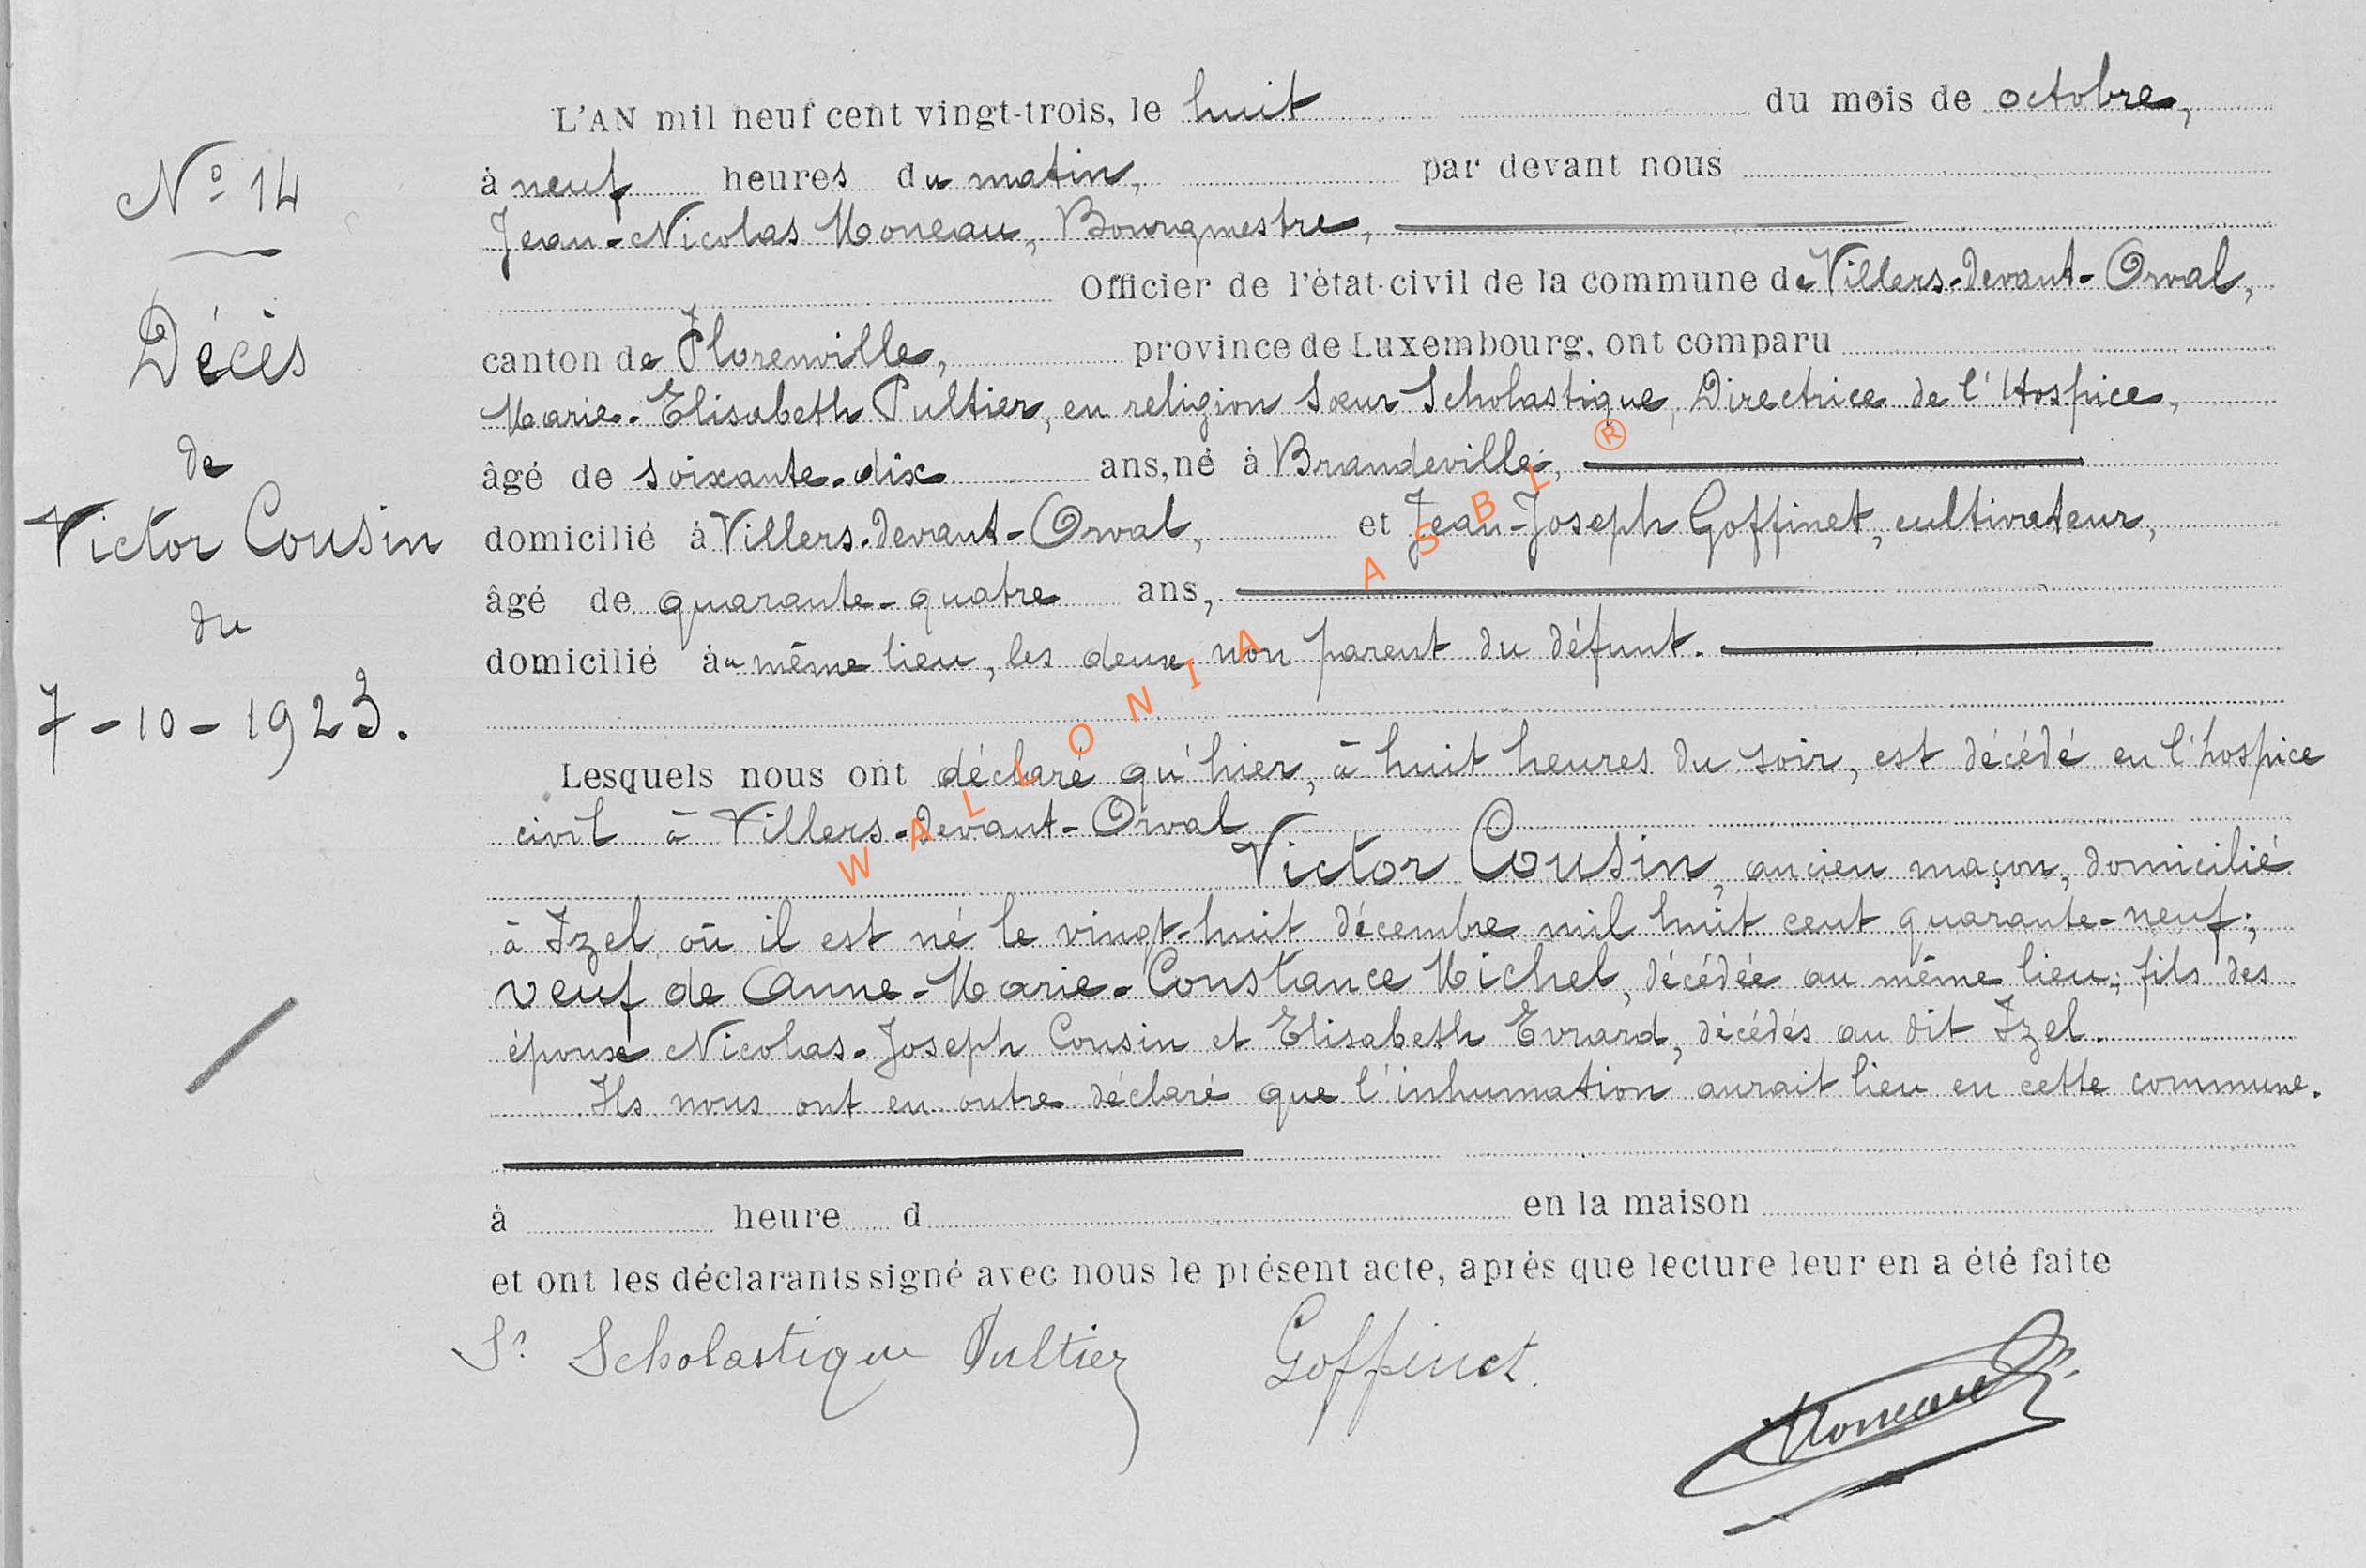 N° 14
Décès
de
Victor Cousin
du
7-10-1923.
L'AN mil neuf cent vingt-trois, le huit du mois de octobre,
à neuf heures du matin, par devant nous
Jean-Nicolas Moneau, Bourgmestre,
Officier de l'état-civil de la commune de Villers-devant-Orval,
canton de Florenville, province de Luxembourg, ont comparu
Marie-Elisabeth Pultier, en religion Sœur Scholastique, Directrice de l'Hospice,
âgé de soixante-dix ans, né à Brandeville,
domicilié à Villers-devant-Orval, et Jean-Joseph Goffinet, cultivateur,
âgé de quarante-quatre ans,
domicilié au même lieu, les deux non parent du défunt.
Lesquels nous ont déclaré qu'hier, à huit heures du soir, est décédé en l'hospice
civil à Villers-devant-Orval
Victor Cousin, ancien maçon, domicilié
à Izel où il est né le vingt-huit décembre mil huit cent quarante-neuf;
veuf de Anne-Marie-Constance Michel, décédée au même lieu; fils des
époux Nicolas-Joseph Cousin et Elisabeth Evrard, décédés au dit Izel.
Ils nous ont en outre déclaré que l'inhumation aurait lieu en cette commune.
à heure d en la maison
et ont les déclarants signé avec nous le présent acte, après que lecture leur en a été faite
Sr Scholastique Pultier Goffinet. Moneau
WALLONIA ASBL ®